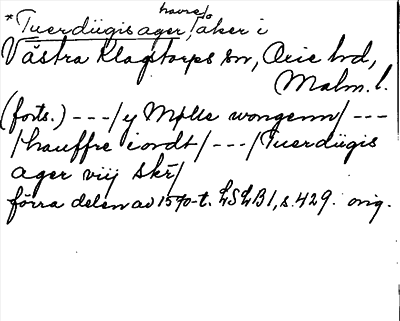 *Tuerdügis ager, havre/åker i
Västra Klagstorps sn, Oxie hd,
Malm. l.
(forts.) ---/ y Mølle wongenn/ ---
/hauffre iordt/ ---/ Tuerdügis
ager viij skr/
förra delen av 1570-t. LSLB 1, s. 429. orig.